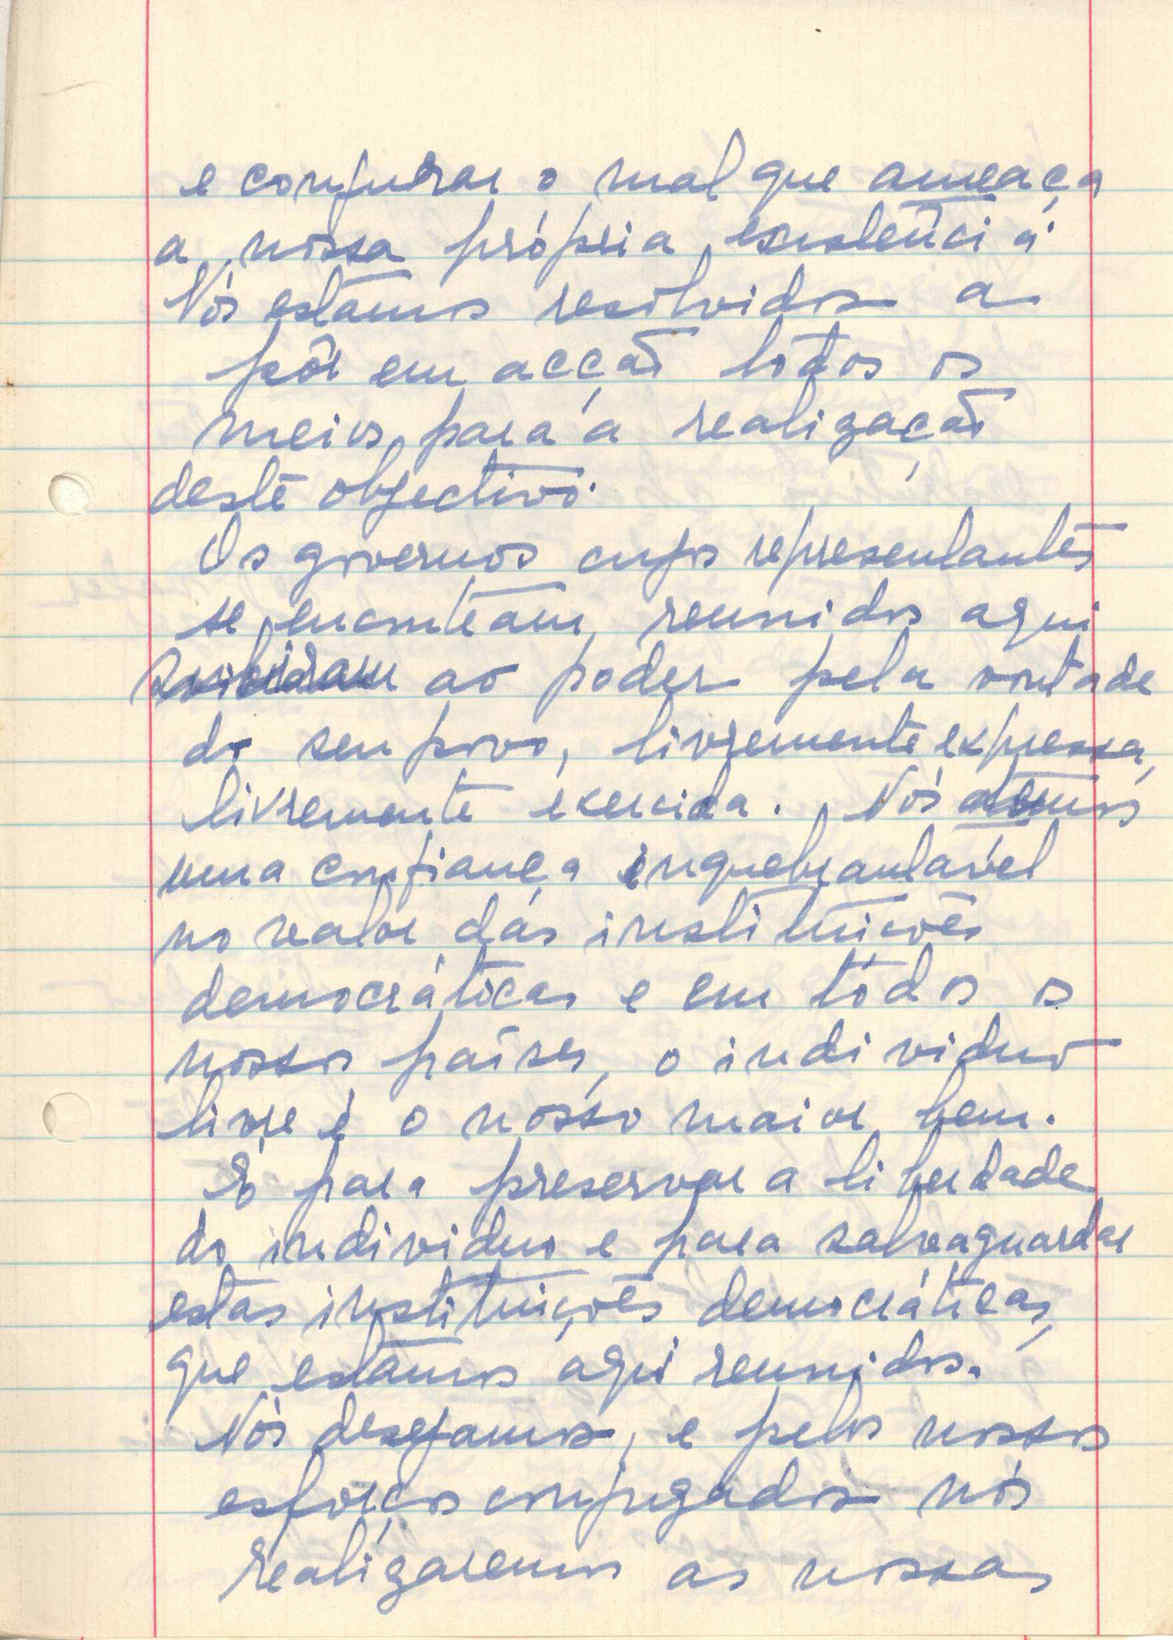 e conjurar o mal que ameaça
a nossa própria existência
Nós estamos resolvidos a
pôr em acção todos os
meios para a realização
deste objectivo.
Os governos cujos representantes
se encontram reunidos aqui
subiram ao poder pela vontade
do seu povo, livremente expressa,
livremente exercida. Nós temos
uma confiança inquebrantável
no valor das instituições
democráticas e em todos os
nossos países, o individuo
livre é o nosso maior bem.
É para preservar a liberdade
do individuo e para salvaguardar
estas instituições democráticas,
que estamos aqui reunidos.
Nós desejamos, e pelos nossos
esforços conjugados nós
realizaremos as nossas